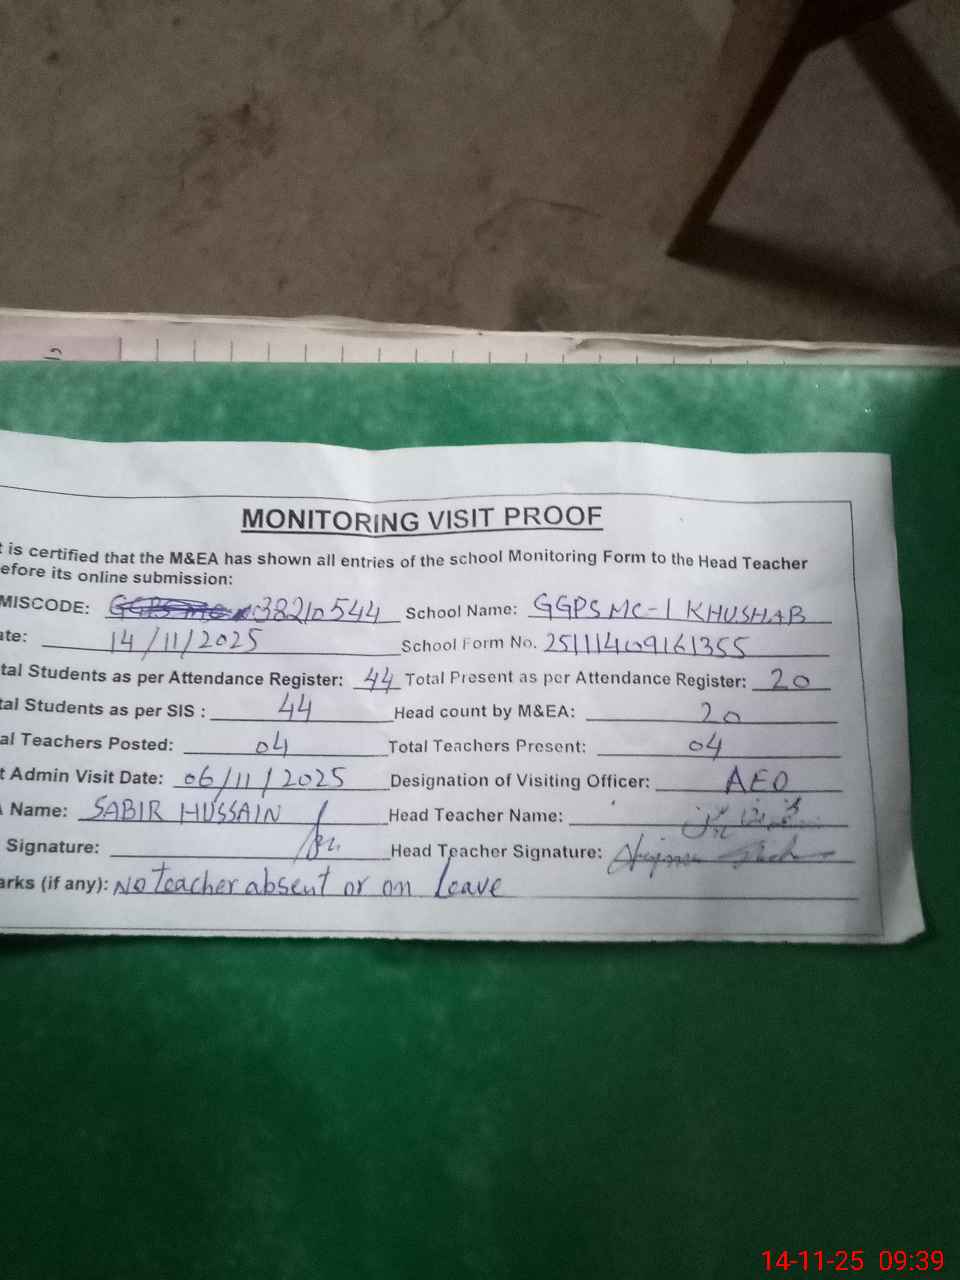 MONITORING VISIT PROOF
t is certified that the M&EA has shown all entries of the school Monitoring Form to the Head Teacher
efore its online submission:
MISCODE: 38210544 School Name: GGPS MC-1 KHUSHAB
ate: 14/11/2025 School Form No. 251114409161355
tal Students as per Attendance Register: 44 Total Present as per Attendance Register: 20
tal Students as per SIS : 44 Head count by M&EA: 20
al Teachers Posted: 04 Total Teachers Present: 04
t Admin Visit Date: 06/11/2025 Designation of Visiting Officer: AEO
A Name: SABIR HUSSAIN Head Teacher Name:
Signature: Head Teacher Signature:
arks (if any): No teacher absent or on leave
14-11-25 09:39